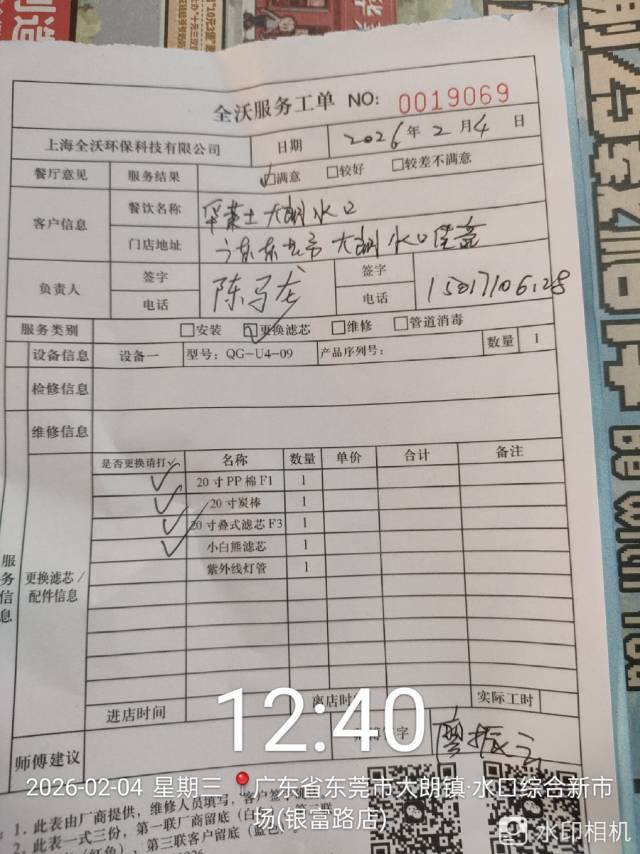 全沃服务工单 NO: 0019069
上海全沃环保科技有限公司 日期 2026年2月4日
餐厅意见 服务结果 ☑满意 □较好 □较差不满意
客户信息 餐饮名称 大朗水口
门店地址 广东东莞市大朗水口
负责人 签字 陈马龙 签字
电话 电话
服务类别 □安装 ☑更换滤芯 □维修 □管道消毒
设备信息 设备一 型号: QG-U4-09 产品序列号: 数量 1
检修信息
维修信息
是否更换请打✓ 名称 数量 单价 合计 备注
✓ 20寸PP棉F1 1
✓ 20寸炭棒 1
✓ 20寸叠式滤芯F3 1
✓ 小白熊滤芯 1
紫外线灯管 1
服务信息
更换滤芯/配件信息
进店时间 离店时 实际工时
师傅建议 签字 振
12:40
2026-02-04 星期三 广东省东莞市大朗镇·水口综合新市场(银富路店)
1, 此表由厂商提供, 维修人员填写, 客户签
2, 此表一式三份, 第一联厂商留底(白
红色), 第三联客户留底(蓝色)
水印相机